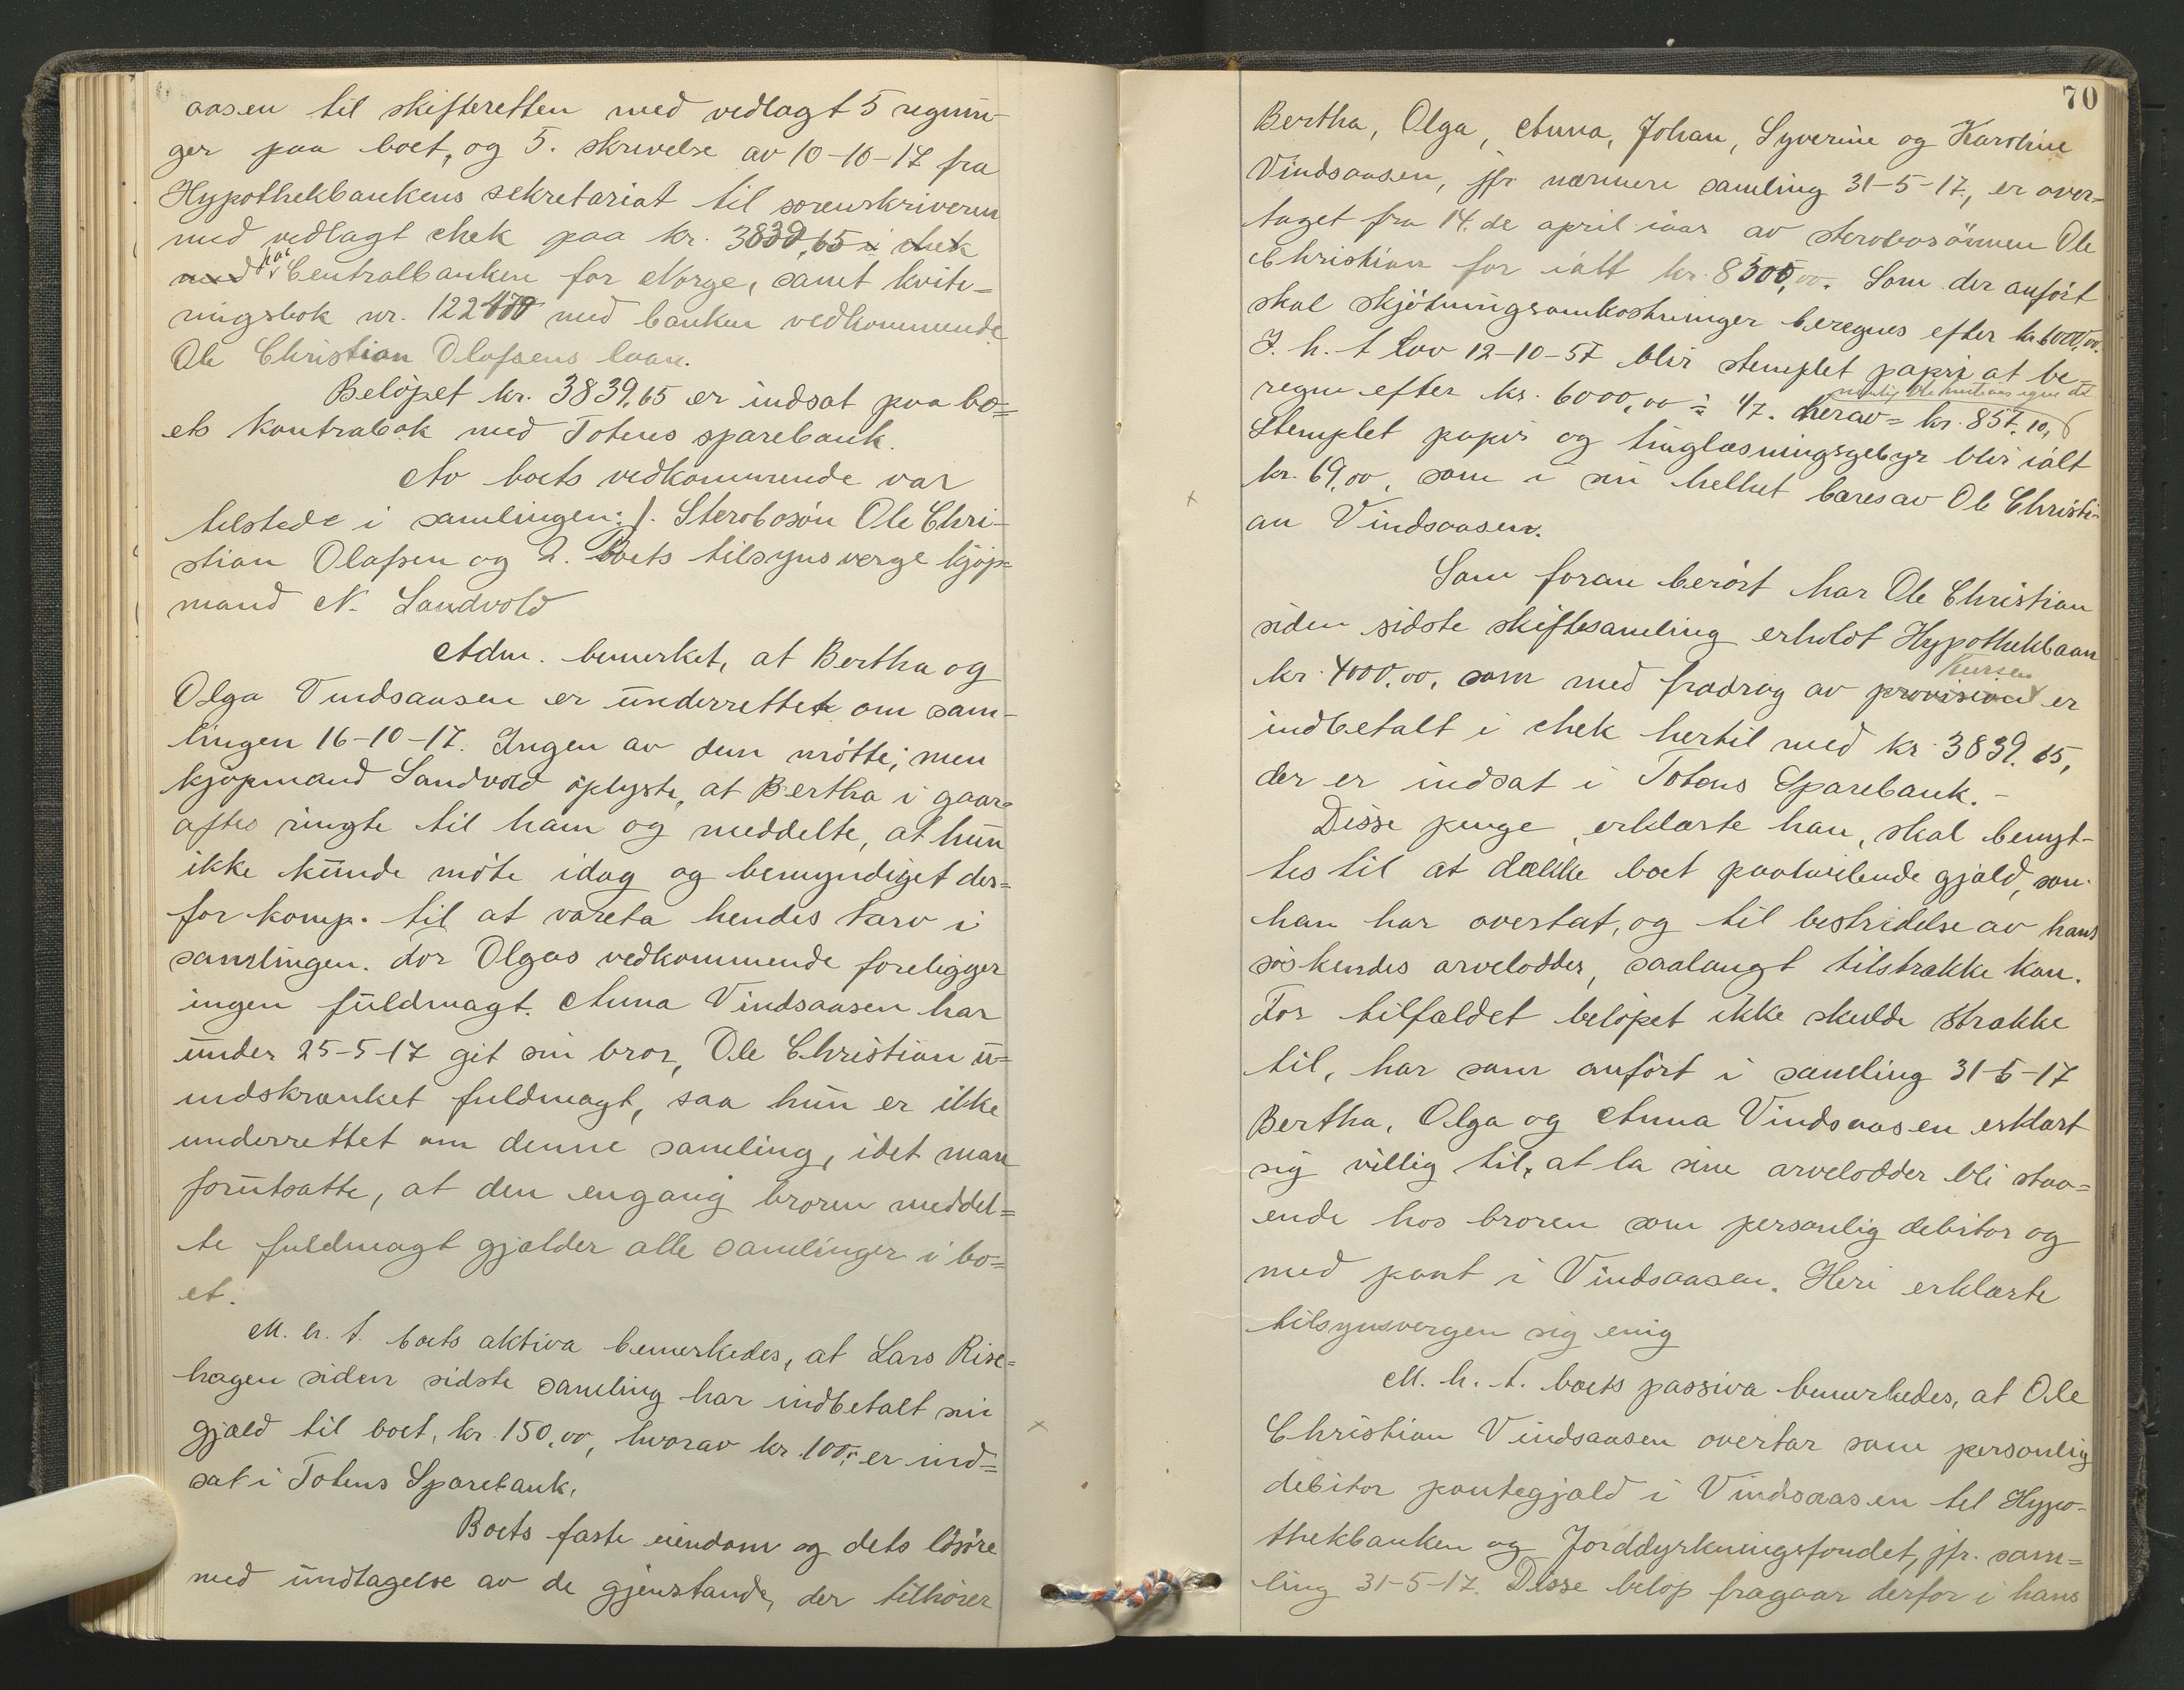 aasen til skifteretten med vedlagt 5 regnin-
ger paa boet, og 5. skrivelse av 10-10-17 fra
Hypothekbankens sekretariat til sorenskriveren
med vedlagt chek paa kr. 3839,65 i chek
med paa Centralbanken for Norge, samt kvite-
ringsbok nr. 122470 med banken vedkommende
Ole Christian Olafsens laan.
Beløpet kr. 3839,65 er indsat paa bo=
ets kontrabok med Totens sparebank.
Av boets vedkommende var
tilstede i samlingen: 1. Sterbosøn Ole Chri-
stian Olafsen og 2. boets tilsynsverge kjøp=
mand N. Sandvold
Adm. bemerket, at Bertha og
Olga Vindsaasen er underrettet om sam-
lingen 16-10-17. Ingen av dem møtte; men
kjøpmand Sandvold oplyste, at Bertha i gaar
aftes ringte til ham og meddelte, at hun
ikke kunde møte idag og bemyndiget der=
for komp. til at vareta hendes tarv i
samlingen. For Olgas vedkommende foreligger
ingen fuldmagt. Anna Vindsaasen har
under 25-5-17 git sin bror, Ole Christian u=
indskrænket fuldmagt, saa hun er ikke
underrettet om denne samling, idet man
forutsatte, at den engang broren meddel=
te fuldmagt gjælder alle samlinger i bo=
et.
M. h. t. boets aktiva bemerkedes, at Lars Rise=
hagen siden sidste samling har indbetalt sin
gjæld til boet, kr. 150,00, hvorav kr. 100,- er ind=
sat i Totens Sparebank.
Boets faste eiendom og dets løsøre
med undtagelse av de gjenstande, der tilhører
70
Bertha, Olga, Anna, Johan, Syverine og Karoline
Vindsaasen, jfr nærmere samling 31-5-17, er over-
taget fra 14.de april iaar av sterbosønnen Ole
Christian for ialt kr. 8505,00. Som der anført
skal skjøtningsomkostninger beregnes efter kr. 6000,00.
I. h. t. lov 12-10-57 blir stemplet papir at be-
regne efter kr. 6000,00 ÷ 1/7 herav = kr. 857,10,
nemlig Ole Kristians egen del
Stemplet papir og tinglæsningsgebyr blir ialt
kr. 69,00, som i sin helhet bæres av Ole Christi-
an Vindsaasen.
Som foran berørt har Ole Christian
siden sidste skiftesamling erholdt Hypotheklaan
kr. 4000,00, som med fradrag av provision er
Kursen
indbetalt i chek hertil med kr. 3839,65,
der er indsat i Totens Sparebank. -
Disse penge, erklærte han, skal benyt-
tes til at dække boet paahvilende gjæld, som
han har overtat, og til bestridelse av hans
søskendes arvelodder, saalangt tilstrække kan.
For tilfældet beløpet ikke skulde strække
til, har som anført i samling 31-5-17
Bertha, Olga og Anna Vindsaasen erklært
sig villig til, at la sine arvelodder bli staa=
ende hos broren som personlig debitor og
med pant i Vindsaasen. Heri erklærte
tilsynsvergen sig enig
M. h. t. boets passiva bemerkedes, at Ole
Christian Vindsaasen overtar som personlig
debitor pantegjæld i Vindsaasen til Hypo-
thekbanken og Jorddyrkningsfondet, jfr. sam=
ling 31-5-17. Disse beløp fragaar derfor i hans